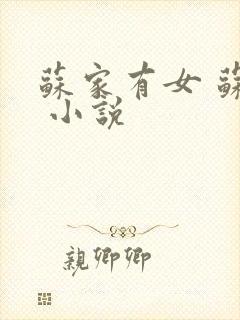 蘇家有女 蘇
小說
親卿卿